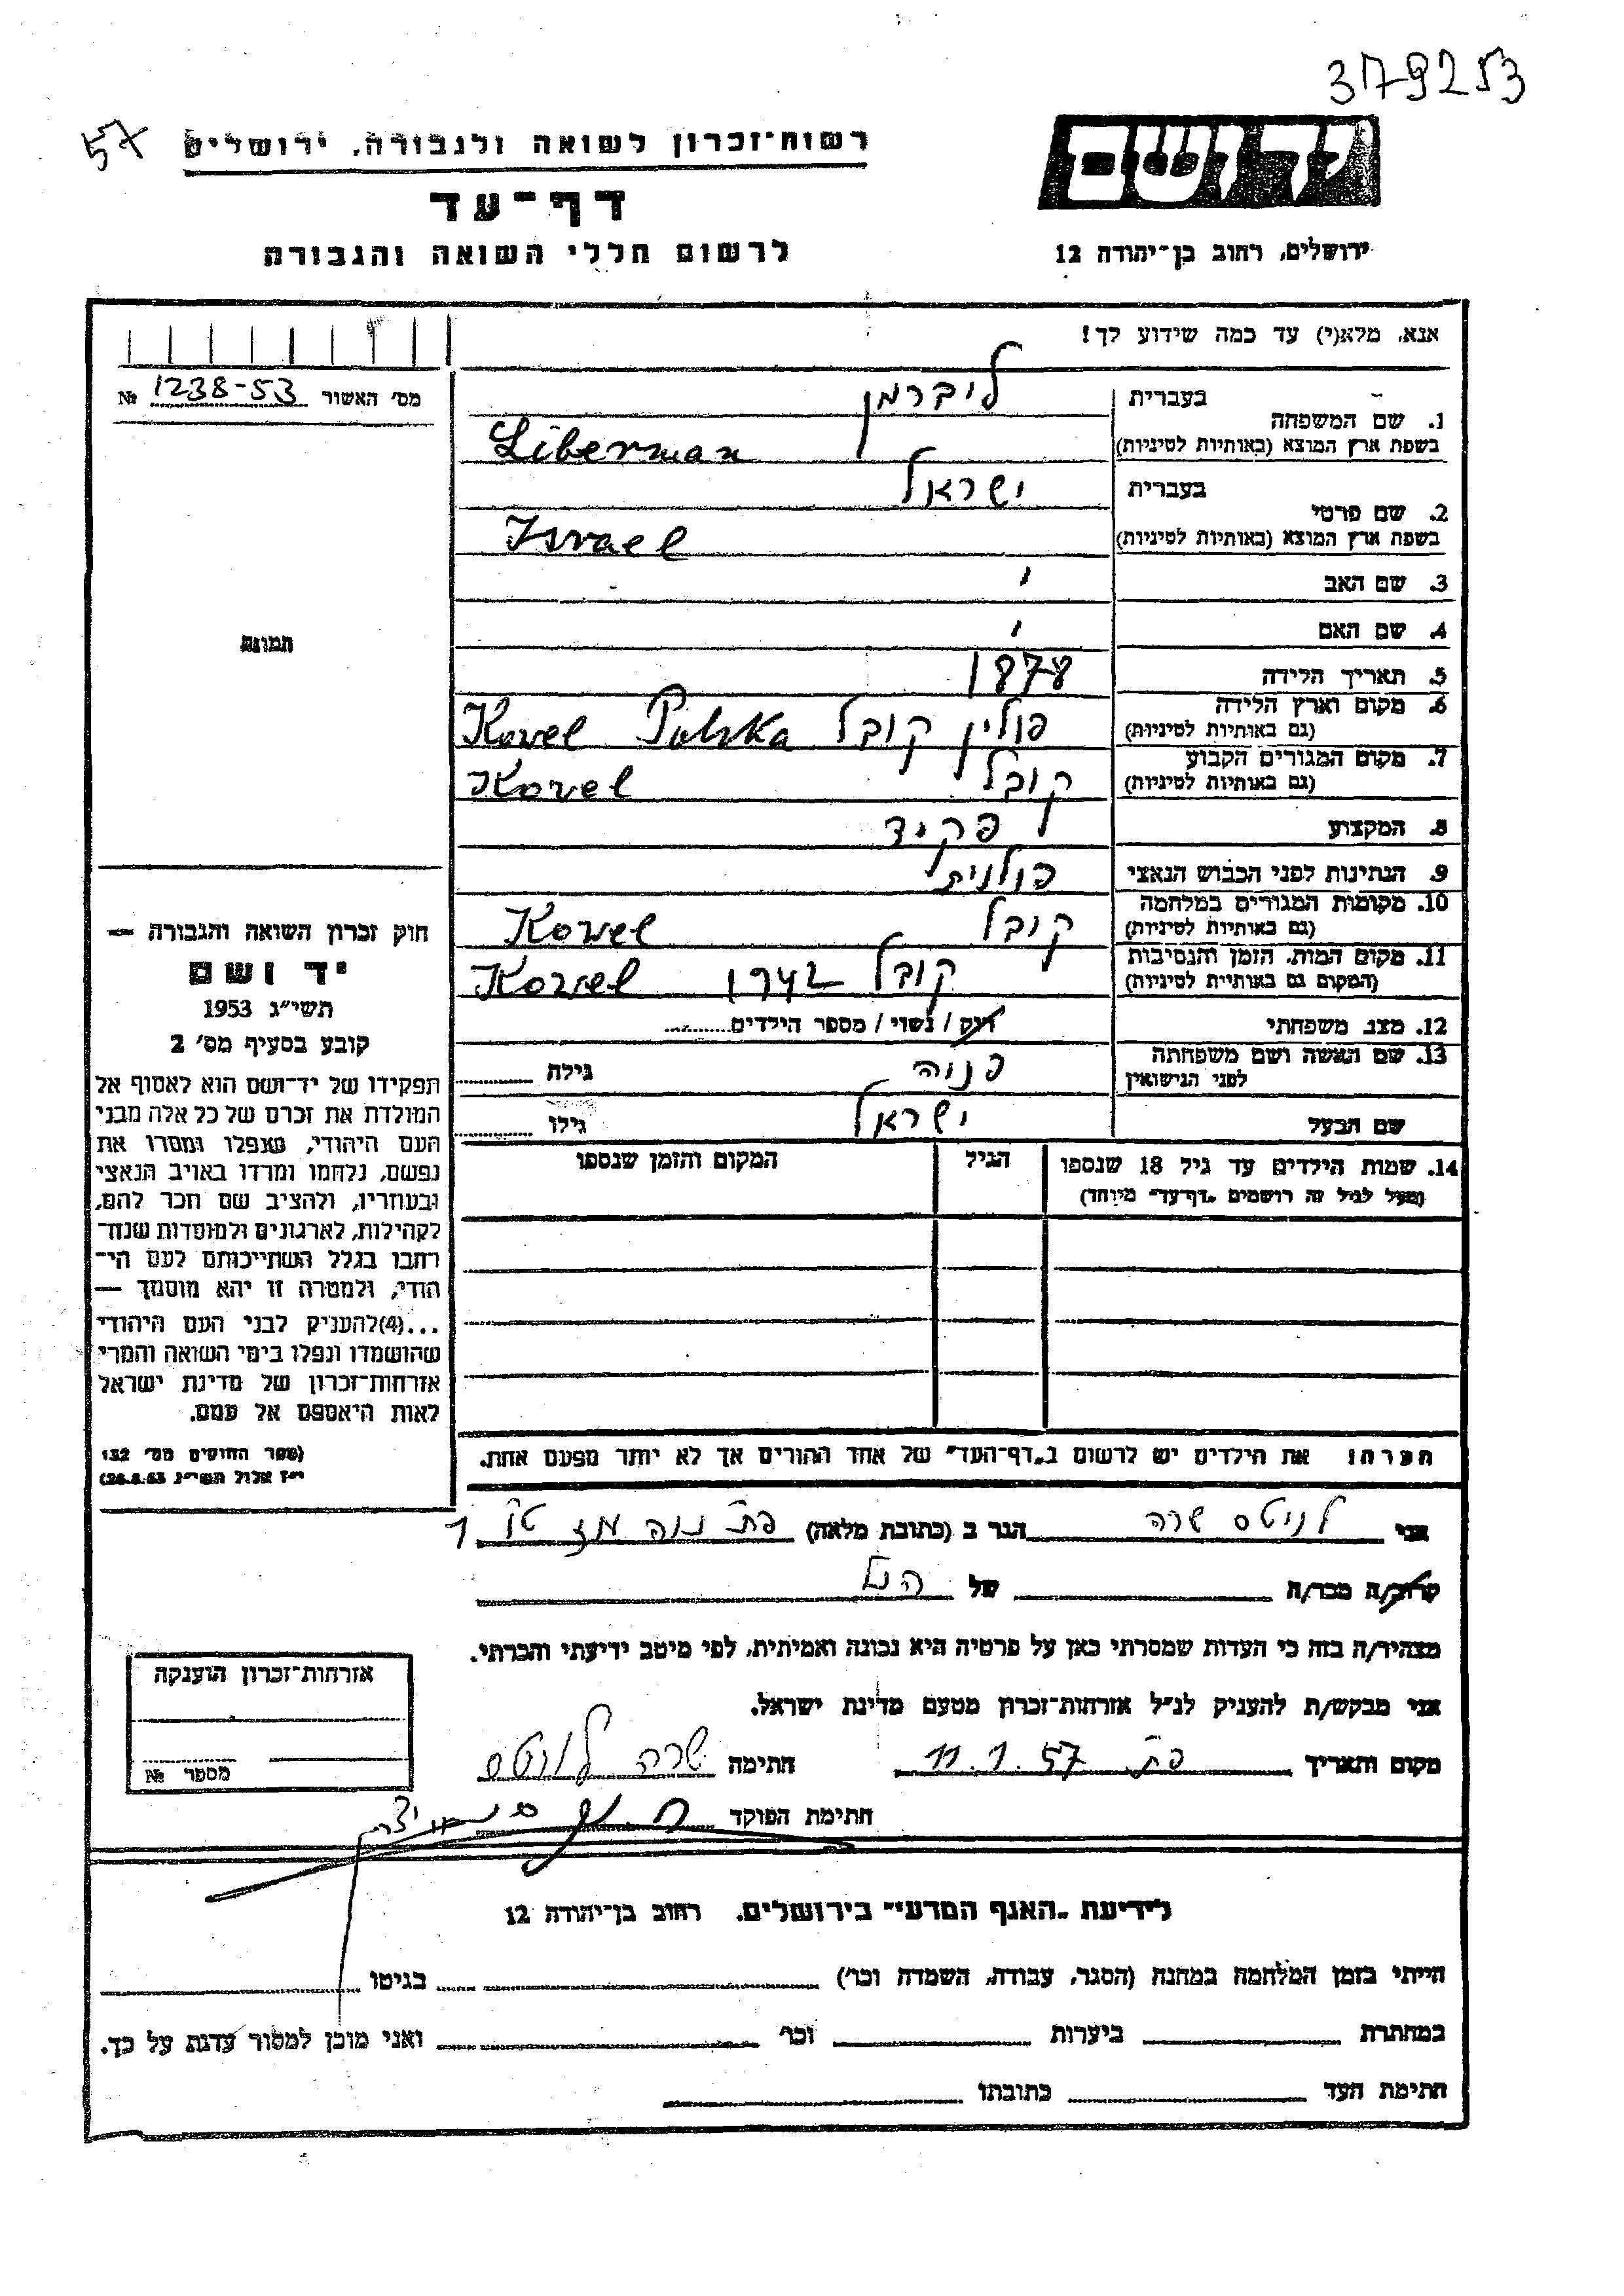 379253
57
רשות-זכרון לשואה ולגבורה, ירושלים
דף-עד
לרשום חללי השואה והגבורה
יד ושם
ירושלים, רחוב בן-יהודה 12
אנא, מלא(י) עד כמה שידוע לך!
מס' האשור 1238-53 №
תמונה
1. שם המשפחה
בעברית ליברמן
בשפת ארץ המוצא (באותיות לטיניות) Liberman
2. שם פרטי
בעברית ישראל
בשפת ארץ המוצא (באותיות לטיניות) Israel
3. שם האב
4. שם האם
5. תאריך הלידה 1878
6. מקום וארץ הלידה פולין קובל Kovel Polska
(גם באותיות לטיניות)
7. מקום המגורים הקבוע קובל Kovel
(גם באותיות לטיניות)
8. המקצוע פקיד
9. הנתינות לפני הכבוש הנאצי פולנית
10. מקומות המגורים במלחמה קובל Kowel
(גם באותיות לטיניות)
11. מקום המות, הזמן והנסיבות קובל 1942 Kowel
(המקום גם באותיות לטיניות)
12. מצב משפחתי רוק / נשוי / מספר הילדים
13. שם האשה ושם משפחתה פנוה גילה
לפני הנישואין
שם הבעל ישראל גילו
14. שמות הילדים עד גיל 18 שנספו הגיל המקום והזמן שנספו
(מעל לגיל זה רושמים "דף-עד" מיוחד)
הערה: את הילדים יש לרשום ב"דף-העד" של אחד ההורים אך לא יותר מפעם אחת.
חוק זכרון השואה והגבורה —
יד ושם
תשי"ג 1953
קובע בסעיף מס' 2
תפקידו של יד-ושם הוא לאסוף אל
המולדת את זכרם של כל אלה מבני
העם היהודי, שנפלו ומסרו את
נפשם, נלחמו ומרדו באויב הנאצי
ובעוזריו, ולהציב שם וזכר להם,
לקהילות, לארגונים ולמוסדות שנח-
רבו בגלל השתייכותם לעם הי-
הודי, ולמטרה זו יהא מוסמך —
...(4)להעניק לבני העם היהודי
שהושמדו ונפלו בימי השואה והמרי
אזרחות-זכרון של מדינת ישראל
לאות היאספם אל עמם.
(ספר החוקים מס' 132
י"ז אלול תשי"ג 26.8.53)
אני לניטס שרה הגר ב (כתובת מלאה) פת נוה
קרוב/ה מכר/ה של הנ"ל
מצהיר/ה בזה כי העדות שמסרתי כאן על פרטיה היא נכונה ואמיתית, לפי מיטב ידיעתי והכרתי.
אני מבקש/ת להעניק לנ"ל אזרחות-זכרון מטעם מדינת ישראל.
מקום ותאריך פת 11.1.57 חתימה שרה
חתימת הפוקד
אזרחות-זכרון הוענקה
מספר №
לידיעת "האגף המדעי" בירושלים, רחוב בן-יהודה 12
הייתי בזמן המלחמה במחנה (הסגר, עבודה, השמדה וכו') בגיטו
במחתרת ביערות וכו' ואני מוכן למסור עדות על כך.
חתימת העד כתובתו